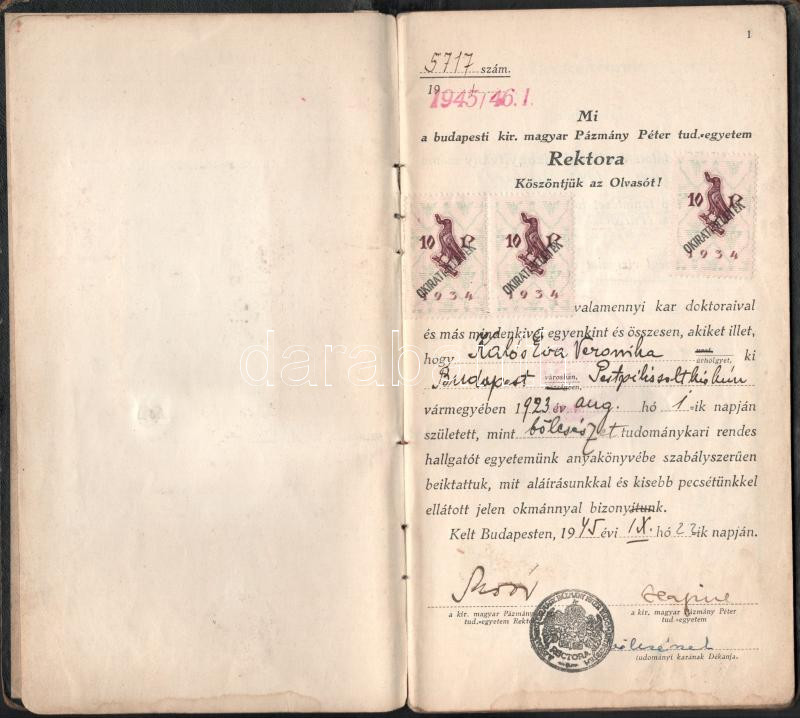 1
5717 szám.
19
1945/46.I.
Mi
a budapesti kir. magyar Pázmány Péter tud.-egyetem
Rektora
Köszöntjük az Olvasót!
10 P
OKIRATI ILLETÉK
1934
10 P
OKIRATI ILLETÉK
1934
10 P
OKIRATI ILLETÉK
1934
valamennyi kar doktoraival
és más mindenkivel egyenkint és összesen, akiket illet,
hogy Kalós Éva Veronika urat úrhölgyet, ki
Budapest városban, községben, Pestpilissoltkiskun
vármegyében 1923 év aug. hó 1-ik napján
született, mint bölcsészet tudománykari rendes
hallgatót egyetemünk anyakönyvébe szabályszerűen
beiktattuk, mit aláírásunkkal és kisebb pecsétünkkel
ellátott jelen okmánnyal bizonyítunk.
Kelt Budapesten, 1945 évi IX. hó 22 ik napján.
a kir. magyar Pázmány
tud.-egyetem
a kir. magyar Pázmány Péter
tud.-egyetem
bölcsészet
tudományi karának Dékánja.
RECTORA
darabanth